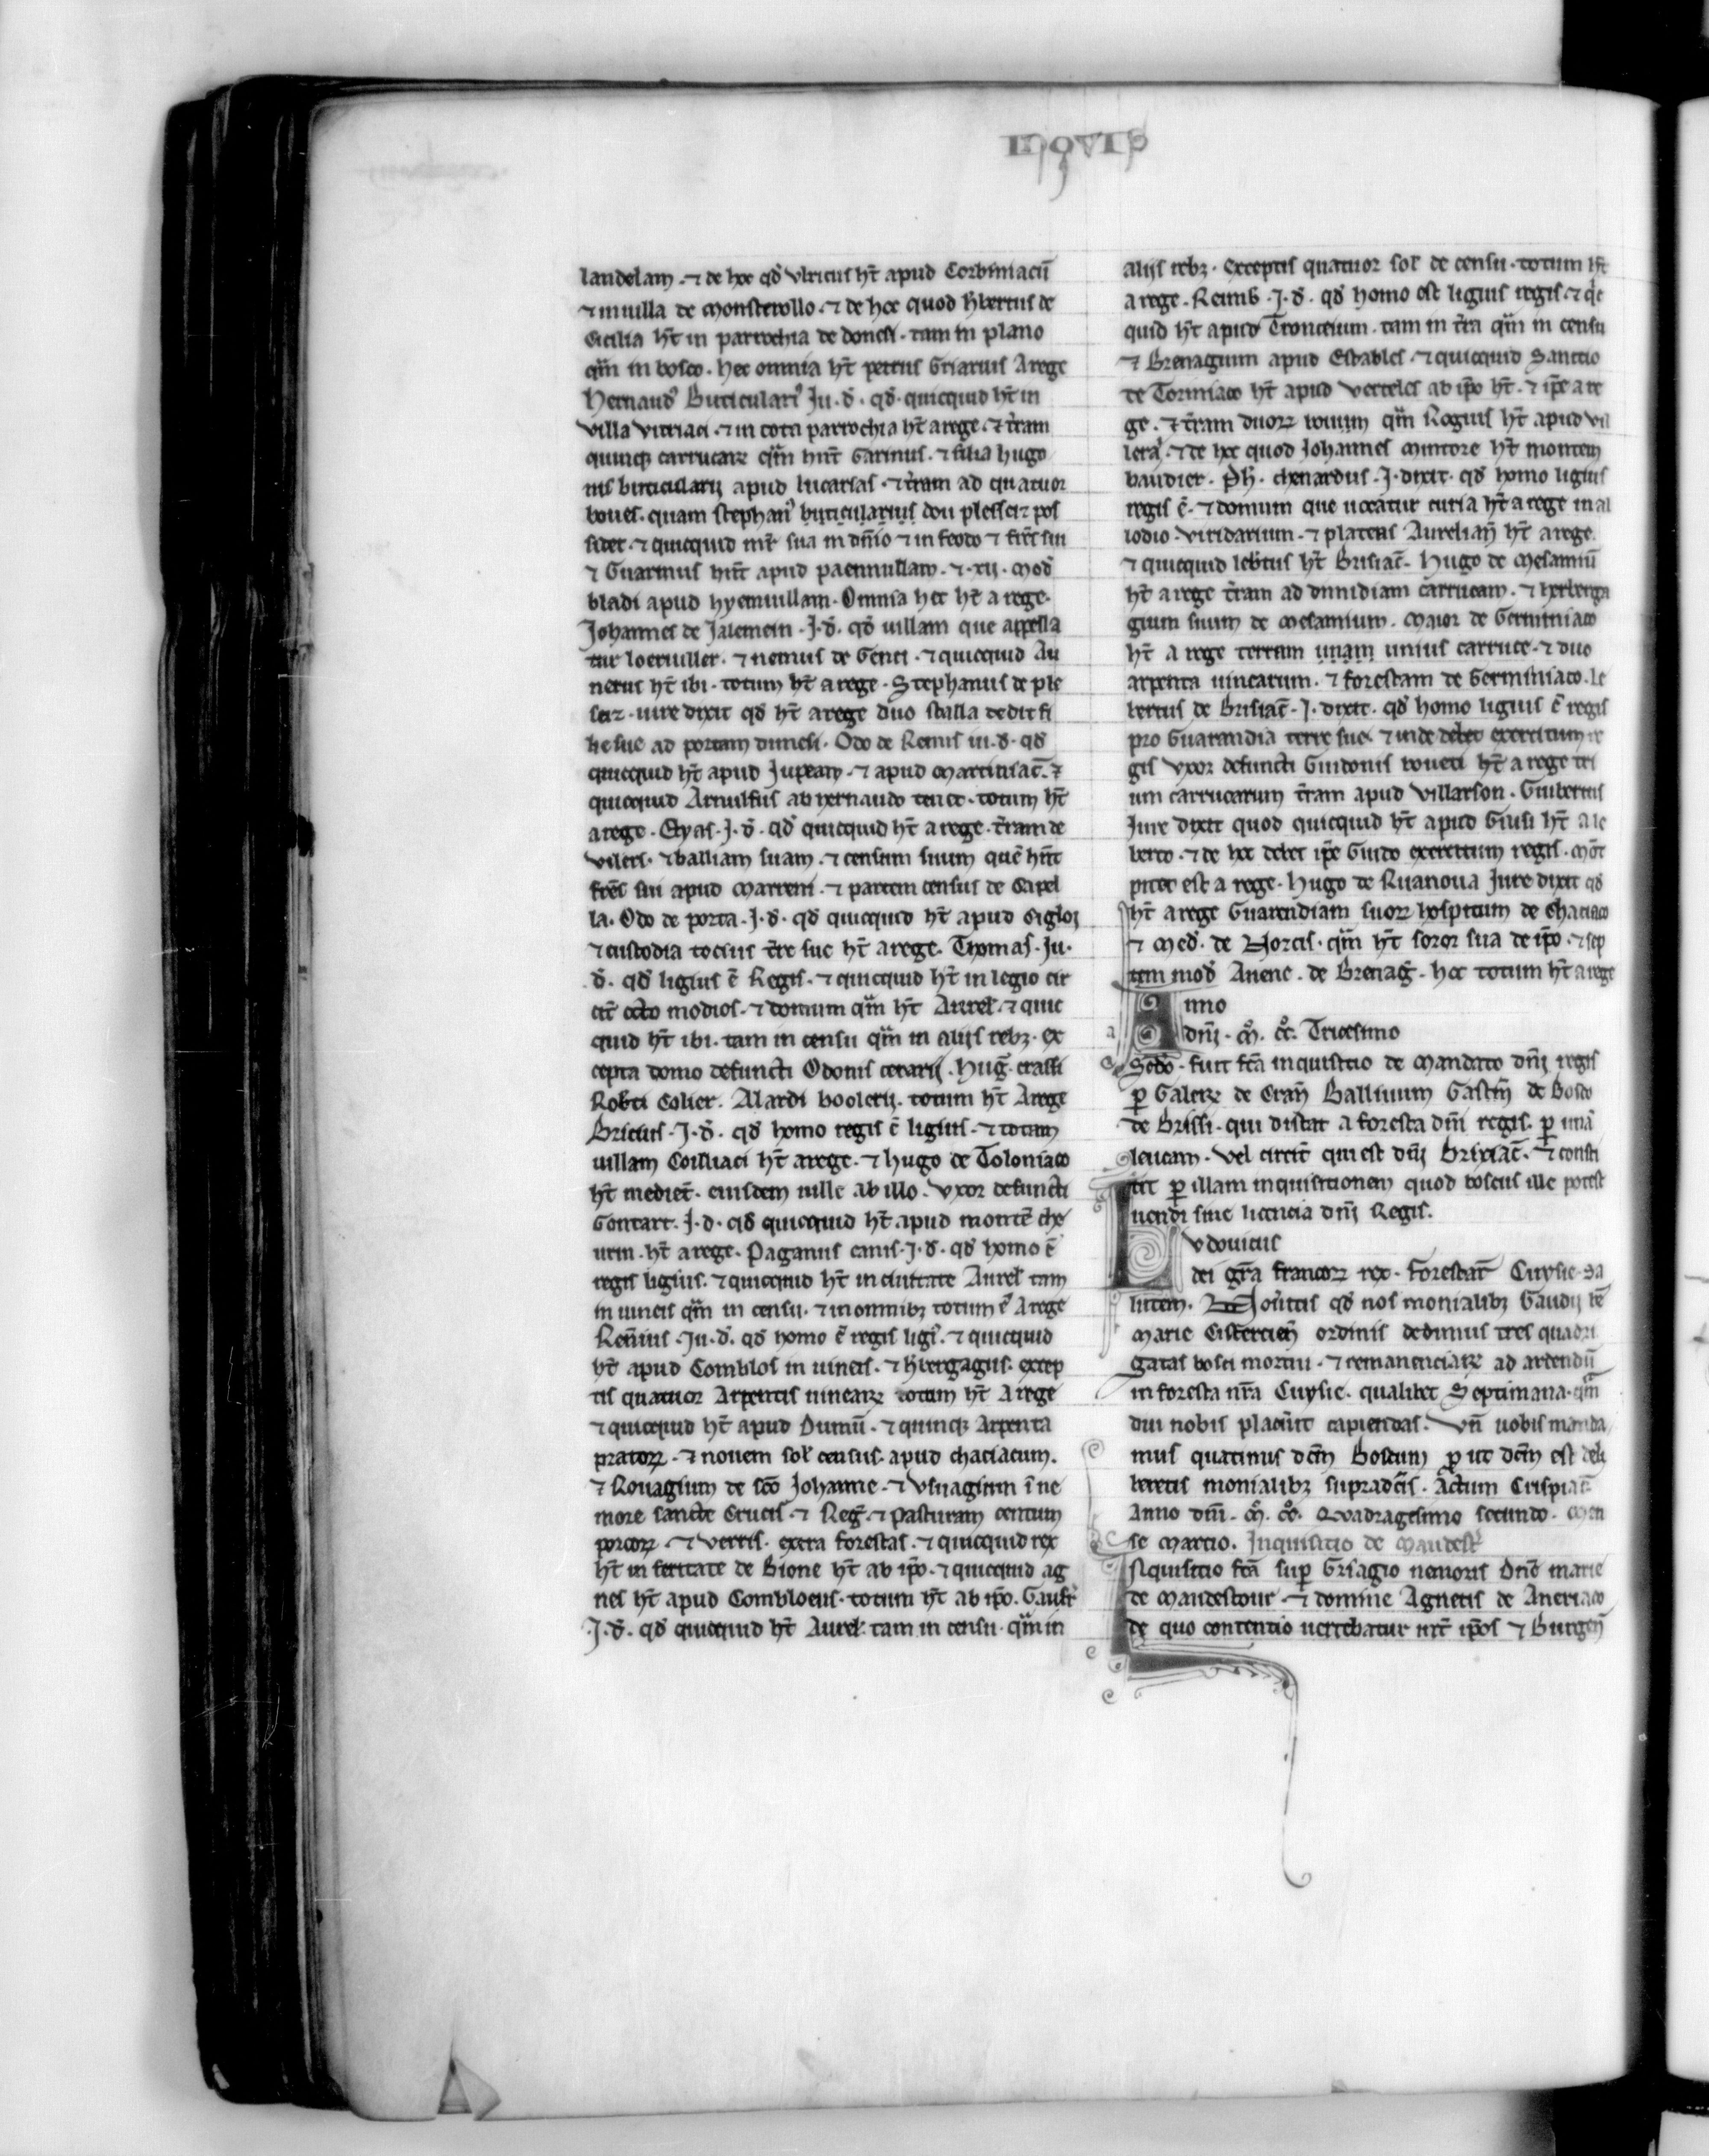 landelam. ⁊ de hoc qd̕ vlricus hr̄ apud Corbiniacū
⁊ in uilla de Monsterollo. ⁊ de hoc quod h̕bertus de
Sicilia hr̄ in parrochia de doncsi. tam in plano
qm̄ in bosco. hec omnia hr̄ petrus Griarius A rege
Hernaud᷒ Buticulari᷒ Iu. d̕. qd̕. quicquid hr̄ in
villa vitriaci. ⁊ in tota parrochia hr̄ a rege. ⁊ tr̄am
quinqꝫ carrucarꝝ qm̄ hn̄t Garinus. ⁊ filia hugo
nis buticularij apud lucarsas. ⁊ tr̄am ad quatuor
boues. quam stephan᷒ buticularius dou plesseiz pos
sidet. ⁊ quicquid mr̄ sua in dn̄io ⁊ in feodo ⁊ fr̄es sui
⁊ Guarinus hn̄t apud paennullam. ⁊ .xij. mod̕
bladi apud hyemuillam. Omnia hec hr̄ a rege.
Johannes de Jalemein. J. d̕. qd̕ uillam que appella
tur loeruiller. ⁊ nemus de Genti. ⁊ quicquid Au
netus hr̄ ibi. totum hr̄ a rege. Stephanus de ple
seiz. iure dixit qd̕ hr̄ a rege duo stalla dedit fi
lie sue ad portam dunesi. Odo de Remis iu. d̕. qd̕
quicquid hr̄ apud Jupeam. ⁊ apud Martiniac̄. ⁊
quicquid Arnulfus ab hernaudo tenet. totum hr̄
a rege. Elyas. J. d̕. qd̕ quicquid hr̄ a rege. tr̄am de
vilers. ⁊ balliam suam. ⁊ censum suum quē hn̄t
fr̄es sui apud Marreni. ⁊ partem census de Capel
la. Odo de porta. J. d̕. qd̕ quicquid hr̄ apud Sigloꝫ
⁊ custodia tocius tr̄re sue hr̄ a rege. Thomas. Ju.
d̕. qd̕ ligius ē Regis. ⁊ quicquid hr̄ in legio cir
cit̄ octo modios. ⁊ domum qm̄ hr̄ Aurel̕. ⁊ quic
quid hr̄ ibi. tam in censu qm̄ in alijs rebꝫ. ex
cepta domo defuncti Odonis cerarij. Hug̕. crassi
Rob̕ti Colier. Alardi boolerij. totum hr̄ A rege
Bricius. J. d̕. qd̕ homo regis ē ligius. ⁊ totam
uillam Coilliaci hr̄ a rege. ⁊ hugo de Toloniaco
hr̄ mediet̄. eiusdem uille ab illo. Vxor defuncti
Gontart. J. d. qd̕ quicquid hr̄ apud montē che
urin. hr̄ a rege. Paganus canis. J. d̕. qd̕ homo ē
regis ligius. ⁊ quicquid hr̄ in ciuitate Aurel̕ tam
in uineis qm̄ in censu. ⁊ in omnibꝫ totum ē A rege
Ren̄ius. Ju. d̕. qd̕ homo ē regis ligi᷒. ⁊ quicquid
hr̄ apud Comblos in uineis. ⁊ h̕bergagiis. excep
tis quatuor Arpentis uinearꝝ totum hr̄ A rege
⁊ quicquid hr̄ apud Dumū. ⁊ quinqꝫ Arpenta
pratorꝝ. ⁊ nouem sol̕ census. apud chaciacum.
⁊ Rouagium de sco̅ Johanne. ⁊ Vsuagium ī ne
more sancte Crucis. ⁊ Reg̕. ⁊ pasturam centum
porcorꝝ. ⁊ verris. extra forestas. ⁊ quicquid rex
hr̄ in feritate de Bione hr̄ ab ip̄o. ⁊ quicquid ag
nes hr̄ apud Combloeus. totum hr̄ ab ip̄o. Gaufr̕
J. d̕. qd̕ quicquid hr̄ Aurel̕. tam in censu. qm̄ in
alijs rebꝫ. exceptis quatuor sol̕ de censu. totum hr̄
a rege. Reimb̕. J. d̕. qd̕ homo est ligius regis. ⁊ qic
quid hr̄ apud Tronceium. tam in tr̄a qm̄ in censu
⁊ Brenagium apud Estables. ⁊ quicquid Sanctio
de Toriniaco hr̄ apud verteles ab ip̄o hr̄. ⁊ ip̄e a re
ge. ⁊ tr̄am duorꝝ bouum qm̄ Rogius hr̄ apud vil
lerā. ⁊ de hoc quod Johannes Mintore hr̄ montem
baudier. Ph̕. chenardus. J. dixit. qd̕ homo ligius
regis ē. ⁊ domum que uocatur curia hr̄ a rege in al
lodio. viridarium. ⁊ plateas Aurelian̄ hr̄ a rege.
⁊ quicquid leb̕tus hr̄ Brisiac̄. Hugo de Mesamiū
hr̄ a rege tr̄am ad dimidiam carrucam. ⁊ herberga
gium suum de Mesamium. Maior de Germiniaco
hr̄ a rege terram unam unius carruce. ⁊ duo
arpenta uinearum. ⁊ forestam de Germiniaco. le
bertus de Brisiac̄. J. dixit. qd̕ homo ligius ē regis
pro Guarandia terre sue. ⁊ inde debet exercitum re
gis Vxor defuncti Guidonis boueti hr̄ a rege tri
um carrucarum tr̄am apud villarson. Guibertus
Iure dixit quod quicquid hr̄ apud Giusi hr̄ a le
berto. ⁊ de hoc debet ip̄e Guido exercitum regis. Mōt
pitet est a rege. Hugo de Ruanoua Iure dixit qd̕
hr̄ a rege Guarendiam suorꝝ hospitum de Chaciaco
⁊ Med̕. de Horcis. qm̄ hr̄ soror sua de ip̄o. ⁊ sep
tem mod̕ Auene. de Brenag̕. hoc totum hr̄ a rege
Anno
dn̄i. M̊. CC̊. Tricesimo
Scd̕o. fuit fcā inquisitio de Mandato dn̄i regis
ꝑ Galerꝫ de Cran̄ Balliuum Gastin̄ de Bosco
de Brissi. qui distat a foresta dn̄i regis. ꝑ unā
leucam. vel circit̄ qui est dn̄i Brixiac̄. ⁊ consti
tit ꝑ illam inquisitionem quod boscus ille potest
uendi sine licencia dn̄i Regis.
Ludouicus
dei gr̄a francorꝝ rex. forestar̄ Cuysie. Sa
lutem. Nou̕itis qd̕ nos monialibꝫ Gaudij be̅
Marie Cistercien̄ ordinis dedimus tres quadri
gatas bosci mortui. ⁊ remanenciarꝝ ad ardendū
in foresta nr̄a Cuysie. qualibet Septimana. qm̄
diu nobis placu̕it capiendas. Vn̄ uobis manda
mus quatinus dcm̄ Boscum ꝓ ut dcm̄ est deli
beretis monialibꝫ supradcīs. Actum Crispiac̄
Anno dn̄i. M̊. CC̊. Quadragesimo secundo. Men
se Martio. Inquisitio de Maudest̕
Inquisitio fcā sup̕ Gr̄iagio nemoris Dn̄e marie
de Maudestour. ⁊ domine Agnetis de Aneriaco
de quo contentio uertebatur int̄ ip̄os ⁊ Burgen̄